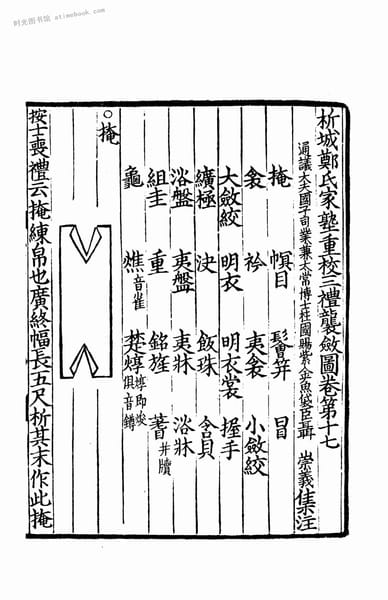 时光图书馆 atimebook.com
析城鄭氏家塾重校三禮襲斂圖卷第十七
通議大夫國子司業兼太常博士柱國賜紫金魚袋臣聶 崇義集注
掩 幎目 鬠笄 冒
衾 衿 夷衾 小斂絞
大斂絞 明衣 明衣裳 握手
纊極 決 飯珠 含貝
浴盤 夷盤 夷牀 浴牀
組圭 重 銘旌 蓍并牘
龜 燋音雀 楚焞焞即焌俱音鐏
○掩
按士喪禮云掩練帛也廣終幅長五尺析其末作此掩